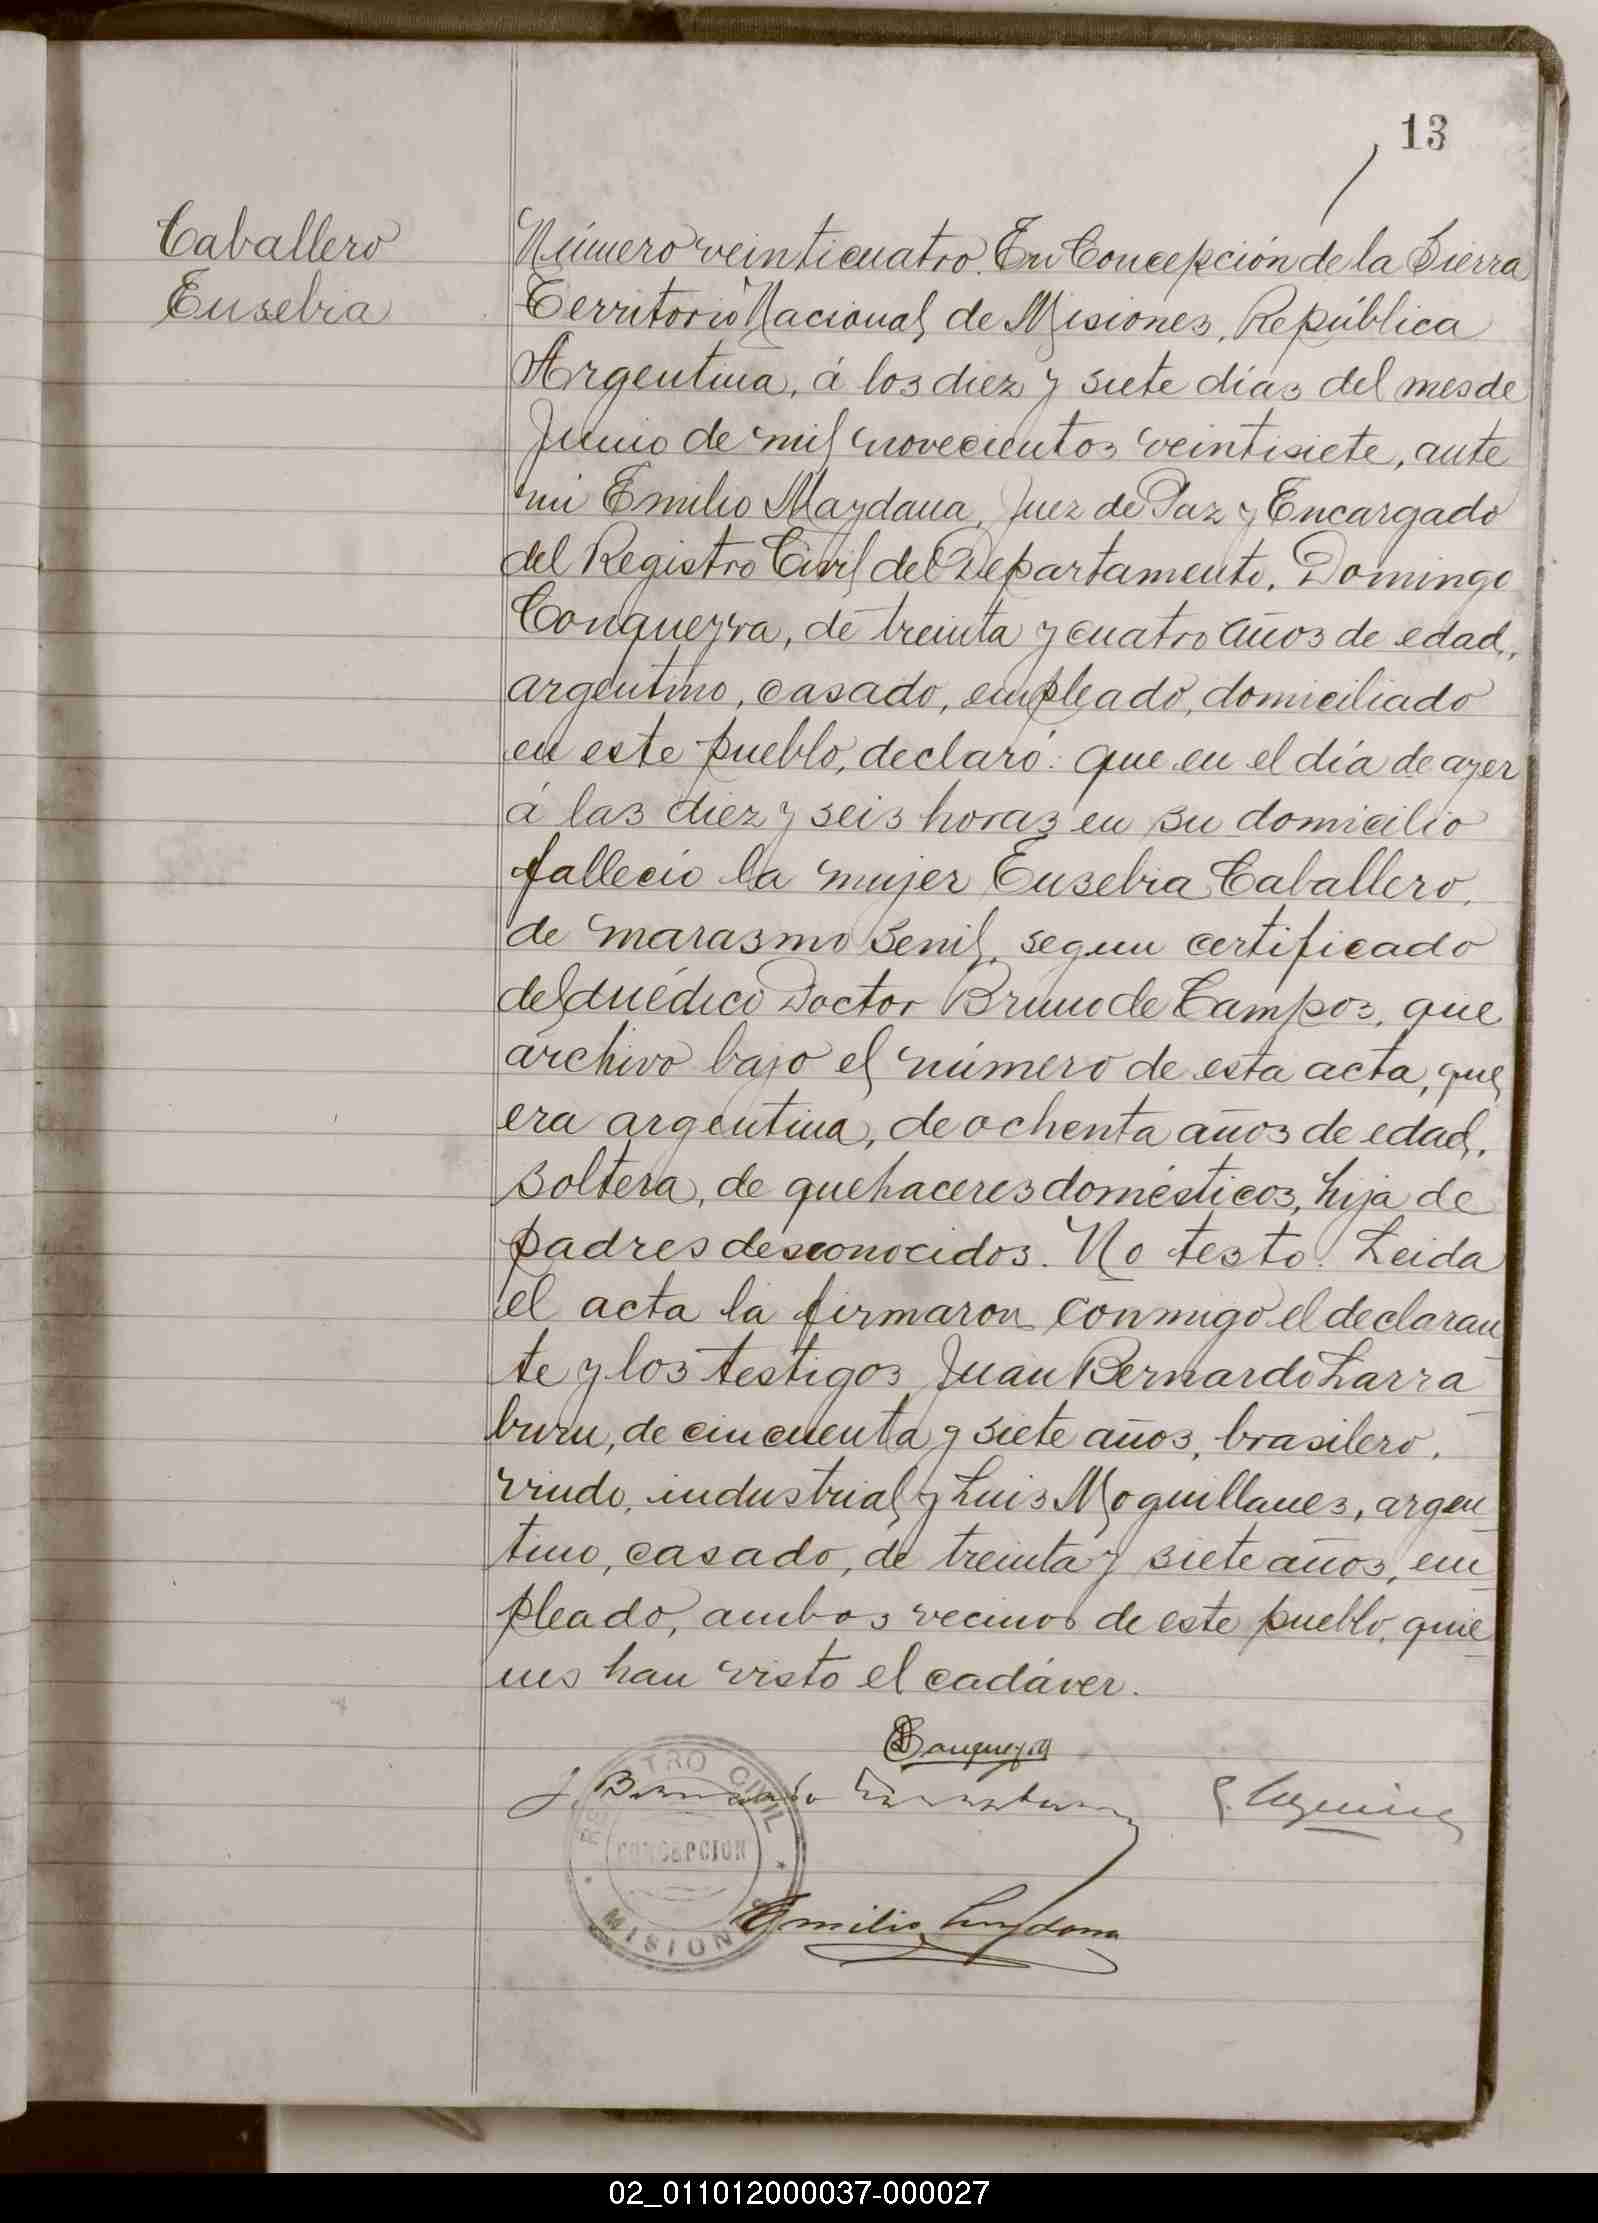 13
Caballero
Eusebia
Número veinticuatro. En Concepción de la Sierra
Territorio Nacional de Misiones, República
Argentina, á los diez y siete días del mes de
Junio de mil novecientos veintisiete, ante
mi Emilio Maydana, Juez de Paz y Encargado
del Registro Civil del Departamento, Domingo
Conqueyra, de treinta y cuatro años de edad,
argentino, casado, empleado, domiciliado
en este pueblo, declaró: que en el día de ayer
á las diez y seis horas en su domicilio
falleció la mujer Eusebia Caballero,
de marasmo senil, segun certificado
del médico Doctor Bruno de Campos, que
archivo bajo el número de esta acta, que
era argentina, de ochenta años de edad,
soltera, de quehaceres domésticos, hija de
padres desconocidos. No testó. Leida
el acta la firmaron conmigo el declaran
te y los testigos Juan Bernardo Larra
buru, de cincuenta y siete años, brasilero,
viudo, industrial, y Luis Moguillanes, argen
tino, casado, de treinta y siete años, em
pleado, ambos vecinos de este pueblo, quie
nes han visto el cadáver.
J. Bernardo Larraburu
REGISTRO CIVIL
CONCEPCION
MISIONES
Emilio Maydana
02_011012000037-000027